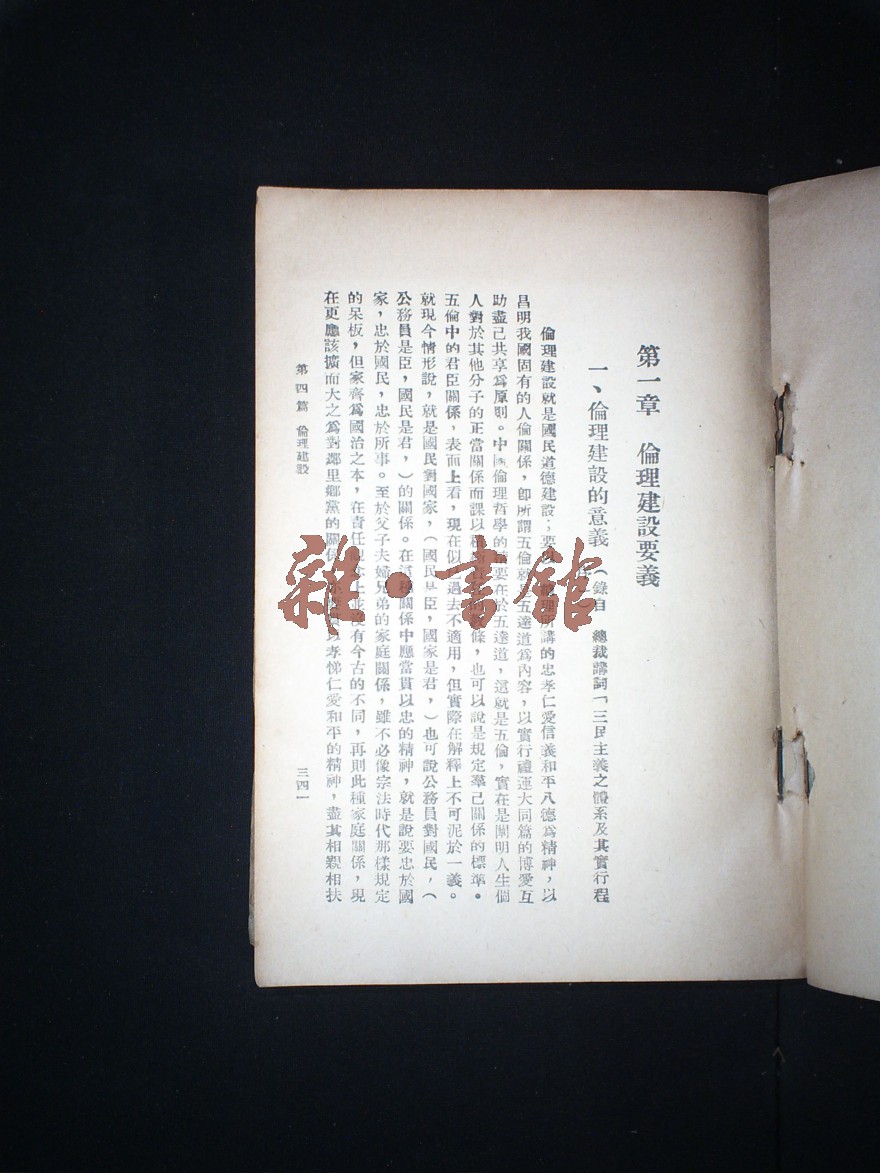 第一章　倫理建設要義
一、倫理建設的意義（錄自　總裁講詞「三民主義之體系及其實行程
倫理建設就是國民道德建設；要以理所講的忠孝仁愛信義和平八德為精神，以
昌明我國固有的人倫關係，卽所謂五倫就五達道為內容，以實行禮運大同篇的博愛互
助盡己共享為原則。中國倫理哲學的要在於五達道，這就是五倫，實在是闡明人生個
人對於其他分子的正當關係而課以條，也可以說是規定羣己關係的標準。
五倫中的君臣關係，表面上看，現在似過去不適用，但實際在解釋上不可泥於一義。
就現今情形說，就是國民對國家，（國民是臣，國家是君，）也可說公務員對國民，（
公務員是臣，國民是君，）的關係。在這種關係中應當貫以忠的精神，就是說要忠於國
家，忠於國民，忠於所事。至於父子夫婦兄弟的家庭關係，雖不必像宗法時代那樣規定
的呆板，但家齊為國治之本，在責任上並沒有今古的不同，再則此種家庭關係，現
在更應該擴而大之為對鄰里鄉黨的關係，以孝悌仁愛和平的精神，盡其相親相扶
第四篇　倫理建設
三四一
雜·書館